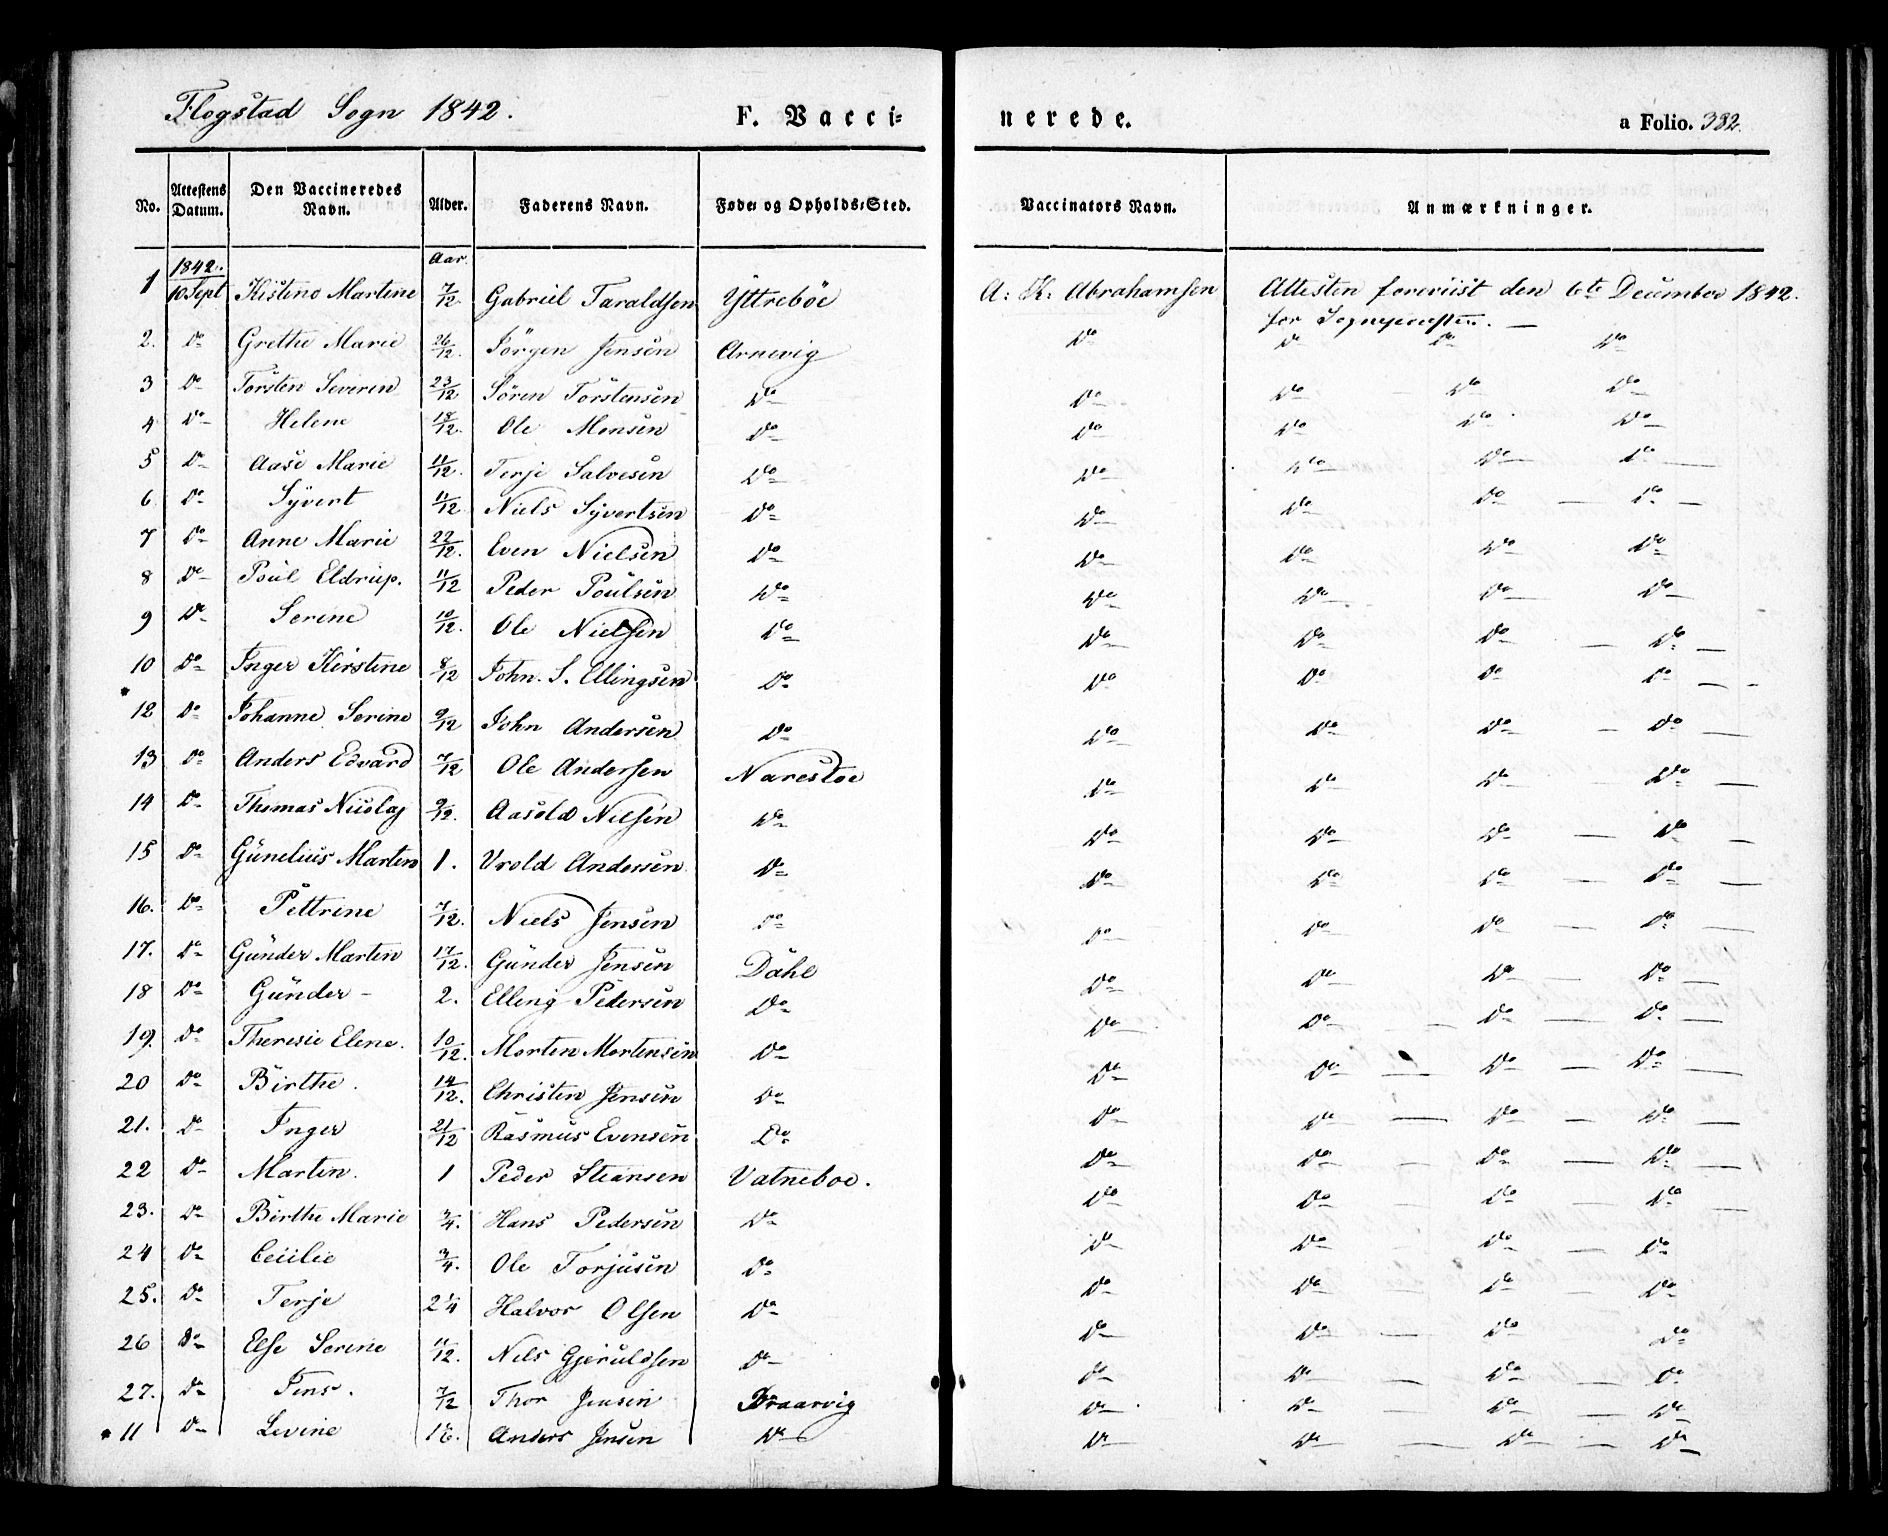 Flogstad Sogn 1842.
F. Vacci-
nerede.
a Folio. 382.
No. | Attestens Datum. | Den Vaccineredes Navn. | Alder. | Faderens Navn. | Føde- og Opholds-Sted. | Vaccinators Navn. | Anmærkninger.
1842. Aar.
1 10 Sept Kistine Martine 7/12 Gabriel Taraldsen Yttreböe A: K: Abrahamsen Attesten foreviist den 6te December 1842.
for Sognepræsten. —
2. Do Grethe Marie 26/12. Jörgen Jensen Arnevig Do Do Do Do
3 Do Torsten Severin 23/12 Sören Torstensen Do Do Do Do Do
4 Do Helene 18/12. Ole Monsen Do Do Do Do Do
5 Do Aase Marie 11/12. Terje Salvesen Do Do Do Do Do
6 Do Syvert 11/12. Niels Syvertsen Do Do Do Do Do
7 Do Anne Marie 22/12. Even Nielsen Do Do Do Do Do
8 Do Poul Eldrup. 11/12 Peder Poulsen Do Do Do Do Do
9 Do Serine 10/12. Ole Nielsen Do Do Do Do Do
10 Do Inger Kirstine 8/12 John. S. Ellingsen Do Do Do Do Do
*
12 Do Johanne Serine 9/12 John Andersen Do Do Do Do Do
13 Do Anders Edvard 7/12 Ole Andersen Narestøe Do Do Do Do
14 Do Thomas Nicolaj 9/12. Aasold Nilsen Do Do Do Do Do
15 Do Gunelius Marten 1. Vrold Andersen Do Do Do Do Do
16. Do Pettrine 7/12. Niels Jensen Do Do Do Do Do
17. Do Gunder Marten 17/12. Gunder Jensen Dahl Do Do Do Do
18 Do Gunder – 2. Elling Pedersen Do Do Do Do Do
19. Do Theresie Elene. 10/12. Morten Mortensen Do Do Do Do Do
20 Do Birthe. 14/12. Christen Jensen Do Do Do Do Do
21. Do Inger 21/12 Rasmus Evensen Do Do Do Do Do
22 Do Marten. 1 Peder Steansen Vatneboe. Do Do Do Do
23. Do Birthe Marie 3/4. Hans Pedersen Do Do Do Do Do
24 Do Cecilie 3/4. Ole Torjusen Do Do Do Do Do
25. Do Terje 2 1/4 Halvor Olsen Do Do Do Do Do
26 Do Else Serine 11/12. Nels Gjeruldsen Do Do Do Do Do
27. Do Jens. 7/12 Thor Jensen Braarvig Do Do Do Do
* 11 Do Levine Anders Jensen Do Do Do Do Do